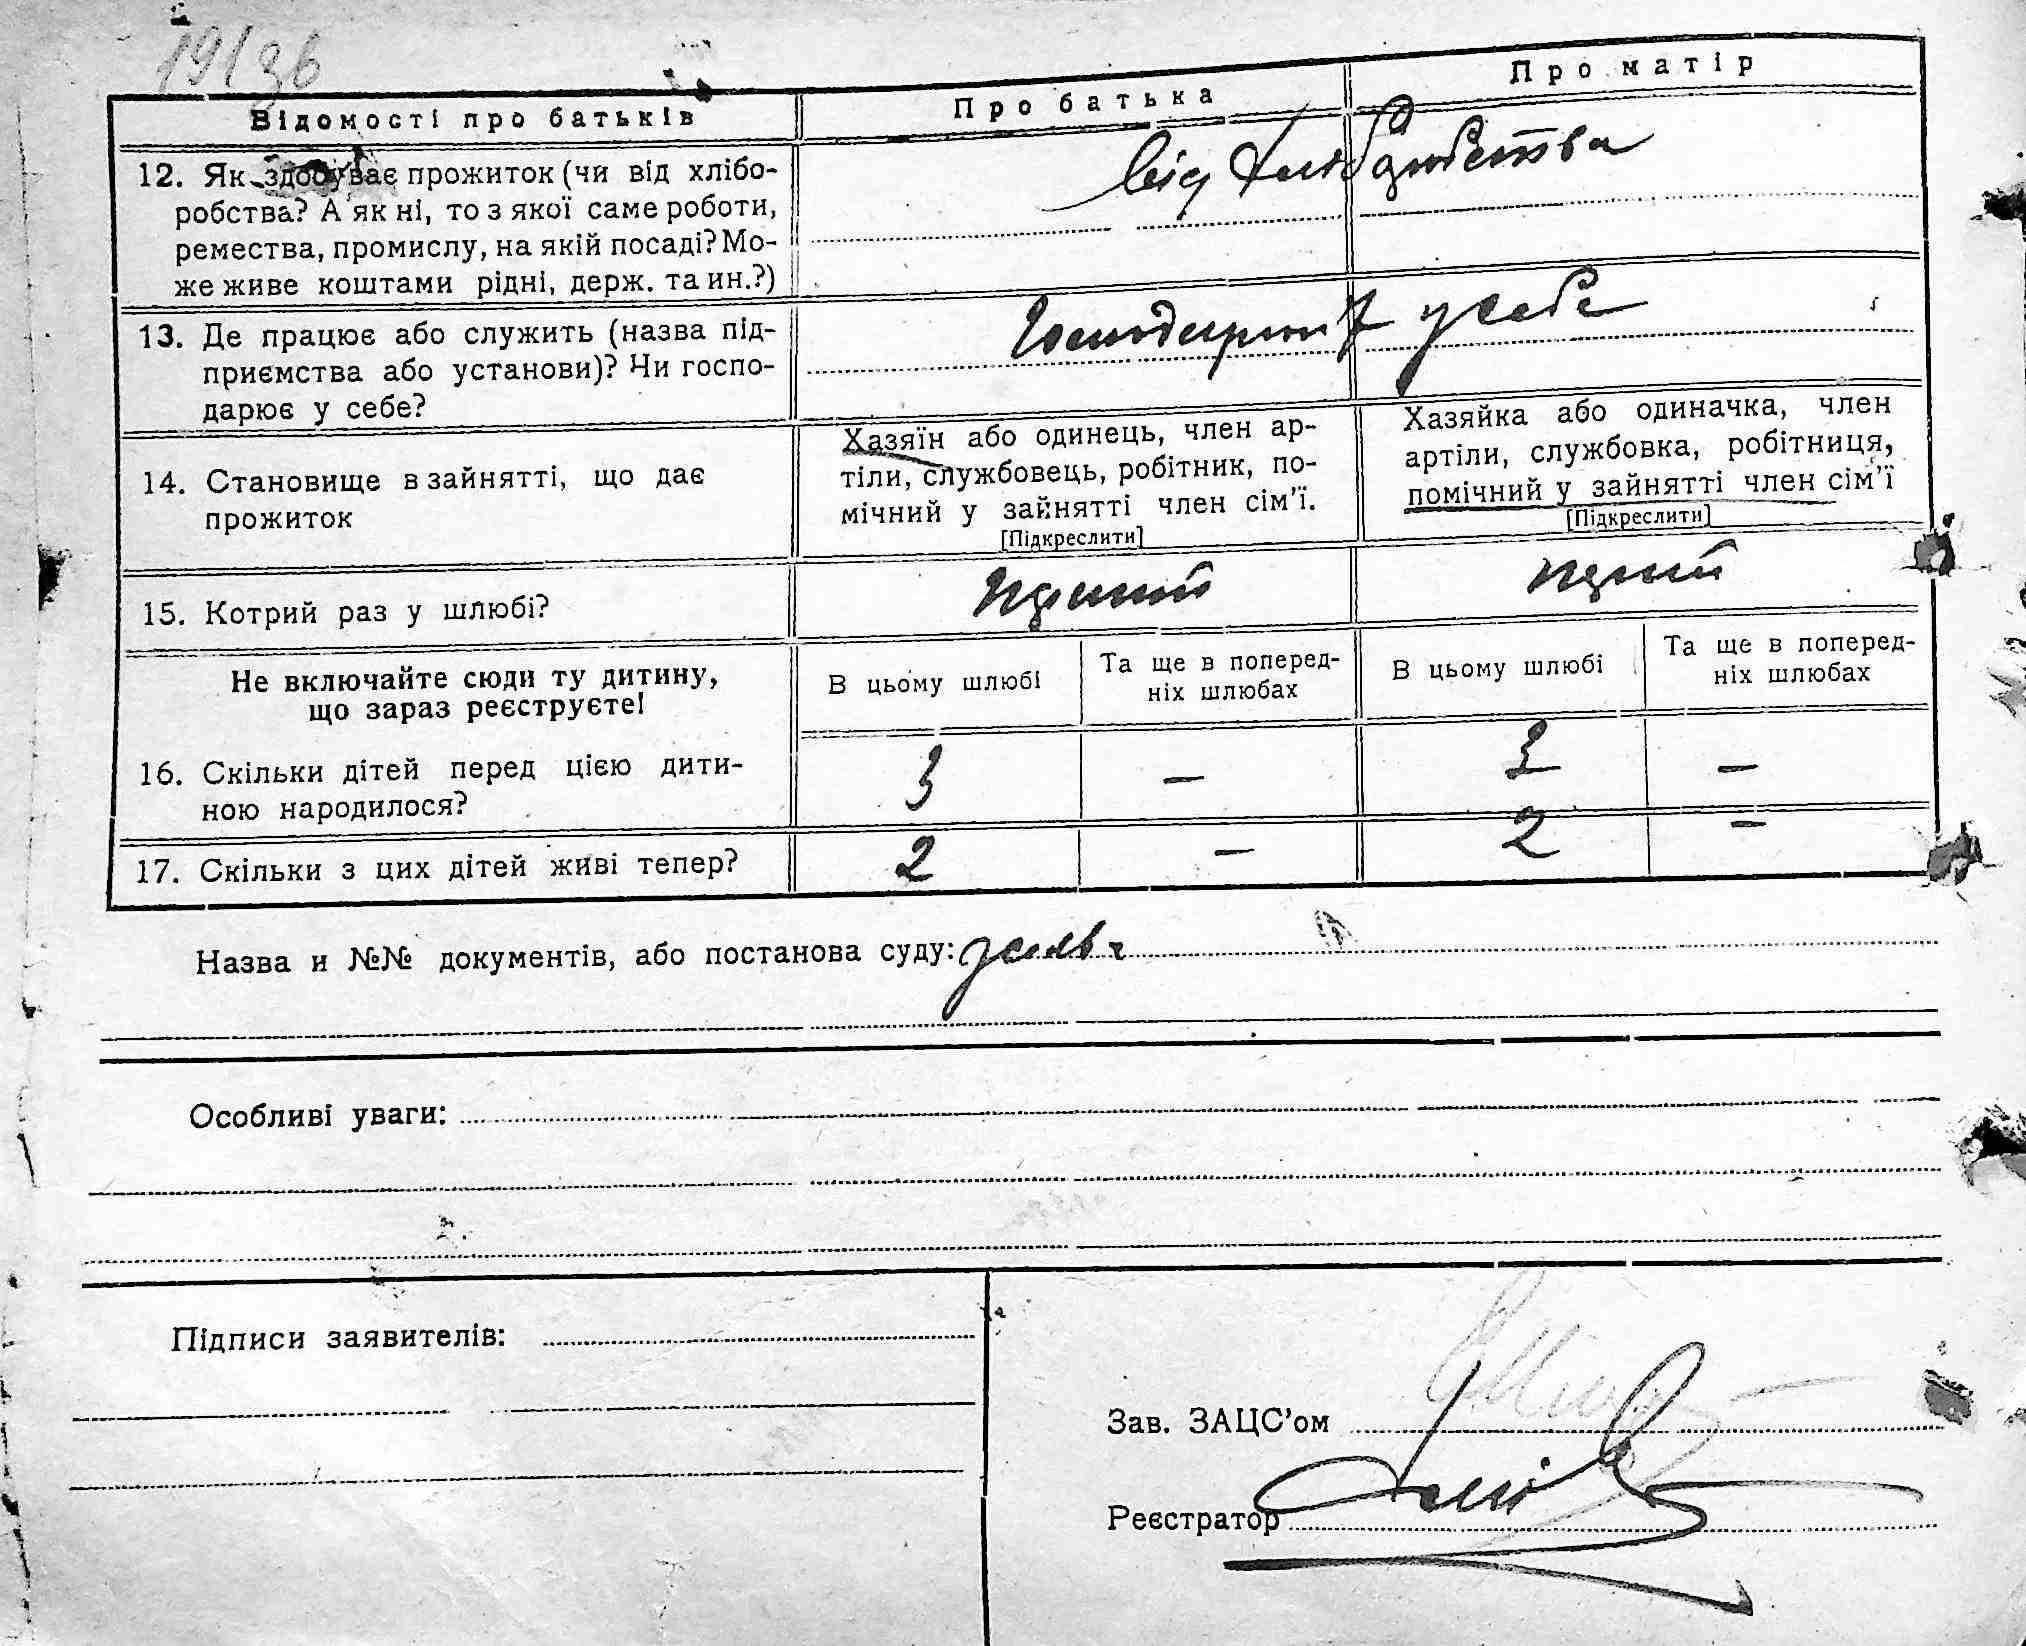 19/36
Відомості про батьків
Про батька
Про матір
12. Як здобуває прожиток (чи від хлібо-
робства? А як ні, то з якої саме роботи,
ремества, промислу, на якій посаді? Мо-
же живе коштами рідні, держ. та ин.?)
від хліборобства
13. Де працює або служить (назва під-
приємства або установи)? Чи госпо-
дарює у себе?
Господарює у себе
14. Становище в зайнятті, що дає
прожиток
Хазяїн або одинець, член ар-
тіли, службовець, робітник, по-
мічний у зайнятті член сім'ї.
[Підкреслити]
Хазяйка або одиначка, член
артіли, службовка, робітниця,
помічний у зайнятті член сім'ї
[Підкреслити]
15. Котрий раз у шлюбі?
Не включайте сюди ту дитину,
що зараз реєструєте!
В цьому шлюбі
Та ще в поперед-
ніх шлюбах
В цьому шлюбі
Та ще в поперед-
ніх шлюбах
16. Скільки дітей перед цією дити-
ною народилося?
3 — 3 —
17. Скільки з цих дітей живі тепер?
2 — 2 —
Назва и №№ документів, або постанова суду:
Особливі уваги:
Підписи заявителів:
Зав. ЗАЦС'ом
Реєстратор